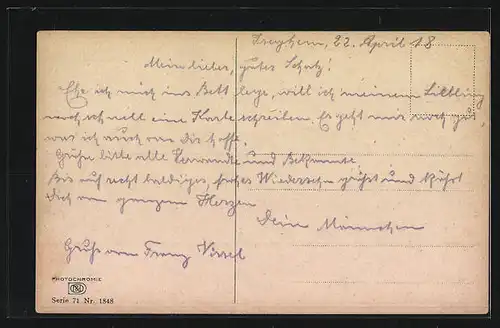 Iseghem, 22. April 18
Mein lieber, guter Schatz!
Ehe ich mich ins Bett lege, will ich meinem Liebling
noch schnell eine Karte schreiben. Es geht mir noch gut,
was ich auch von Dir hoffe.
Grüße bitte alle Verwandte und Bekannte.
Bis auf recht baldiges, frohes Wiedersehn grüßt und küßt
Dich von ganzem Herzen
Dein Männchen
Gruß von Franz
PHOTOCHROMIE
Serie 71 Nr. 1848